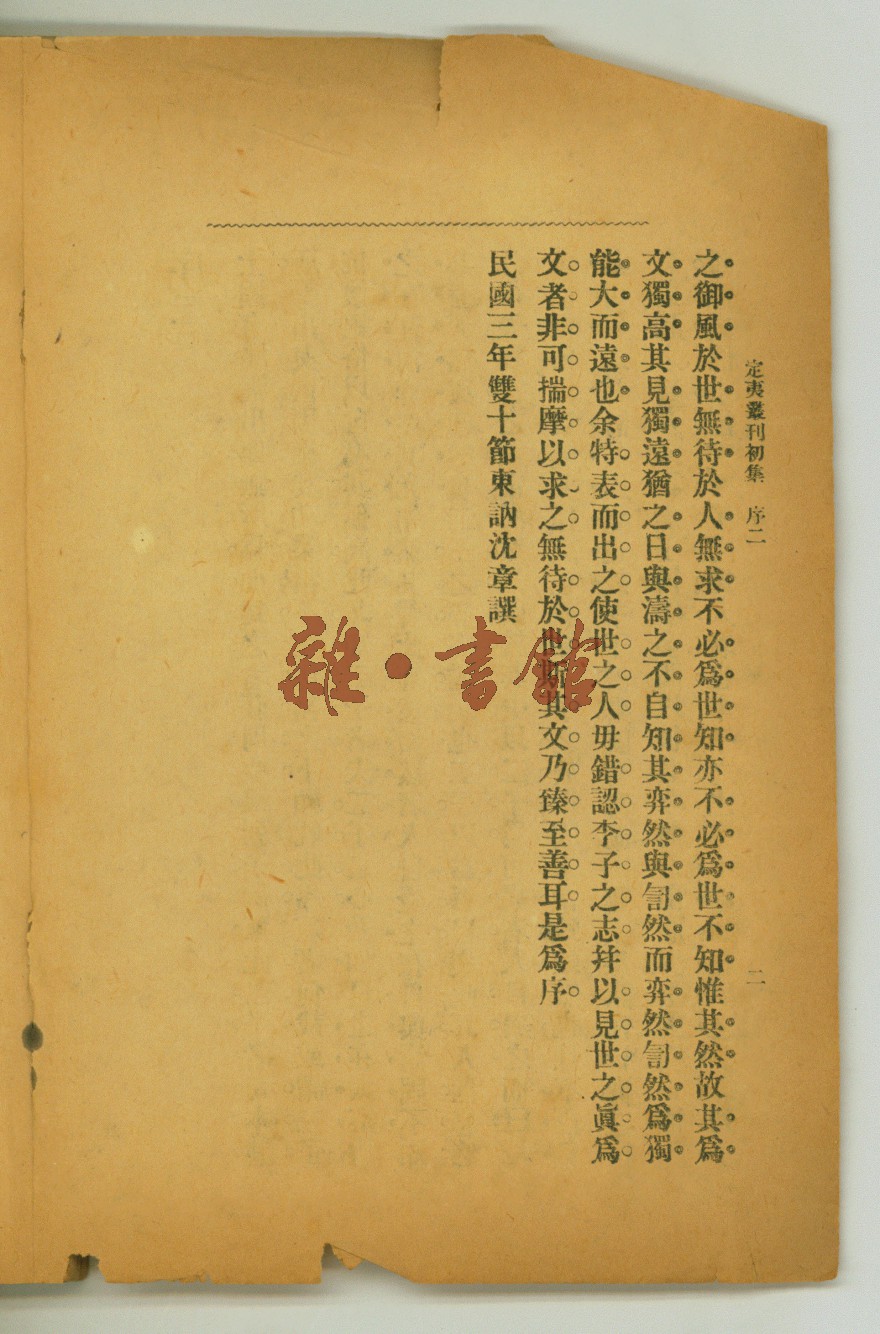 定夷叢刊初集 序二 二
之御風於世無待於人無求不必爲世知亦不必爲世不知惟其然故其爲
文獨高其見獨遠猶之日與濤之不自知其弈然與訇然而弈然訇然爲獨
能大而遠也余特表而出之使世之人毋錯認李子之志幷以見世之眞爲
文者非可揣摩以求之無待於世斯其文乃臻至善耳是爲序
民國三年雙十節東訥沈章譔
雜·書館